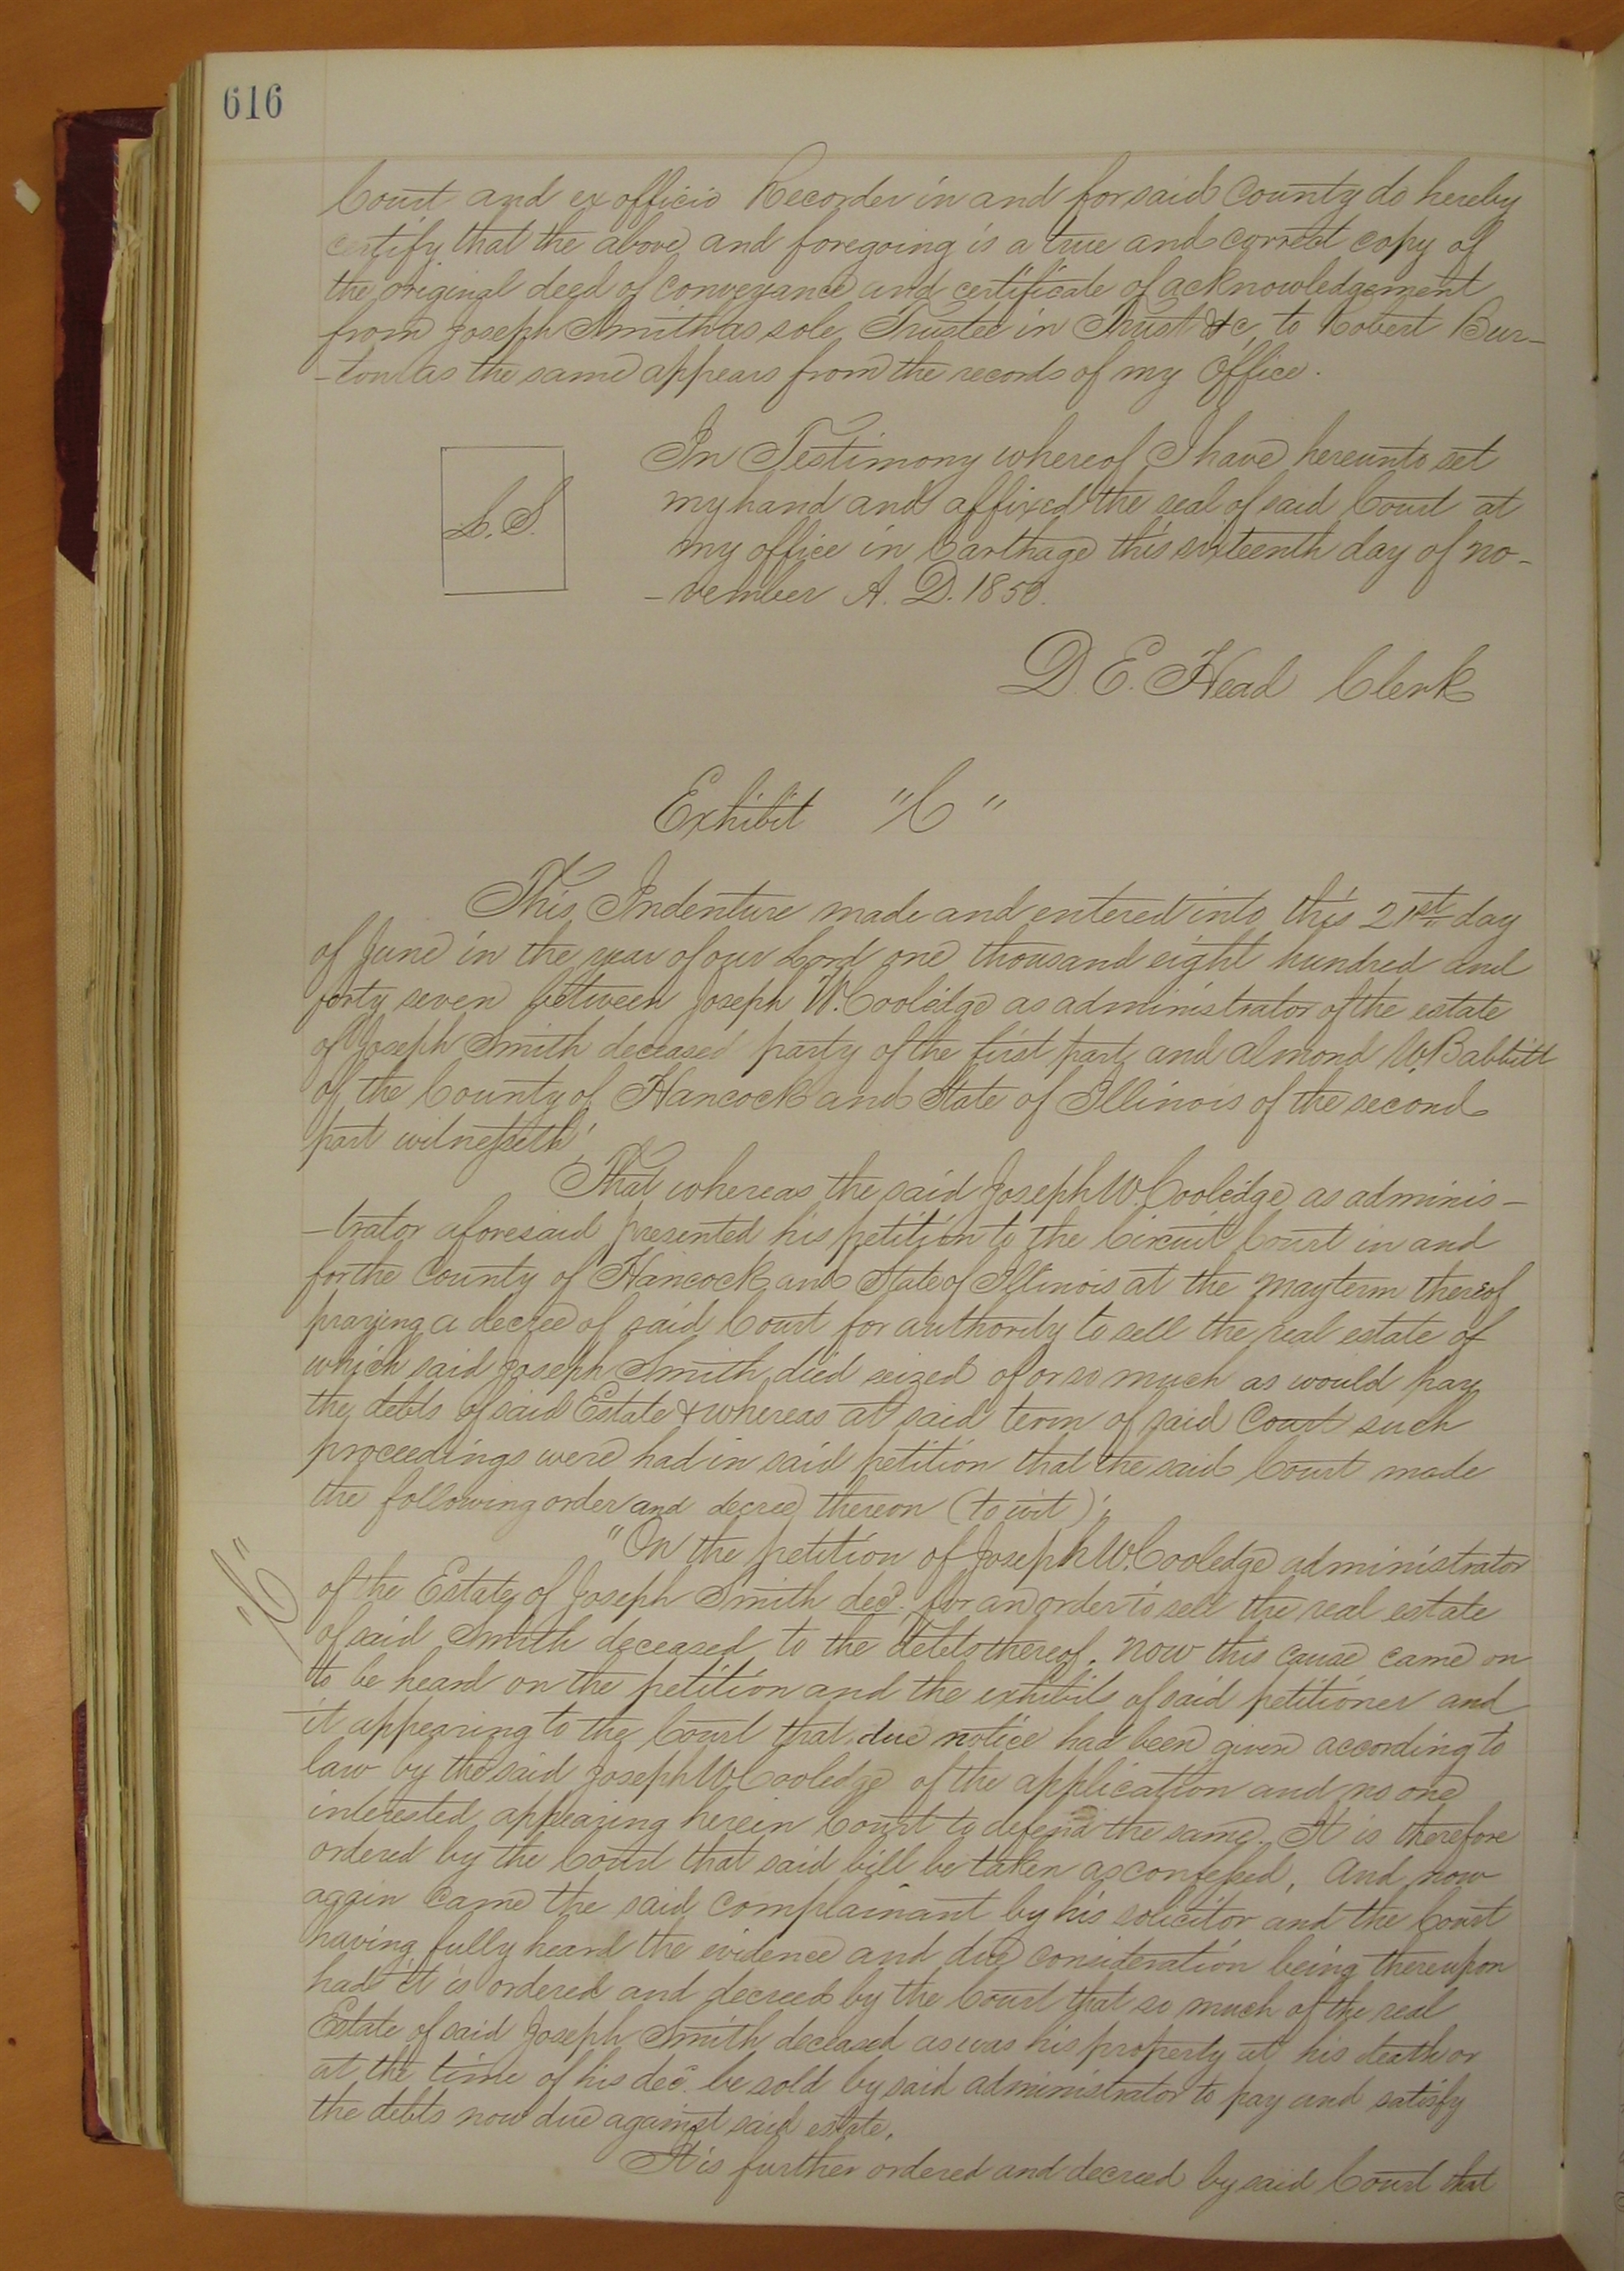 616
Court and ex officio Recorder in and for said County do hereby
certify that the above and foregoing is a true and correct copy of
the original deed of conveyance and certificate of acknowledgement
from Joseph Smith as sole Trustee in Trust &c, to Robert Bur-
-ton as the same appears from the records of my Office.
In Testimony whereof I have hereunto set
my hand and affixed the seal of said Court at
L.S.
my office in Carthage this sixteenth day of no-
-vember A. D. 1850.
D. E. Head Clerk
Exhibit "C"
This Indenture made and entered into this 21st day
of June in the year of our Lord one thousand eight hundred and
forty seven between Joseph W. Coolidge as administrator of the estate
of Joseph Smith deceased party of the first part and Almond W. Babbitt
of the County of Hancock and State of Illinois of the second
part witnesseth;
That whereas the said Joseph W. Coolidge as adminis-
-trator aforesaid presented his petition to the Circuit Court in and
for the County of Hancock and State of Illinois at the May term thereof
praying a decree of said Court for authority to sell the real estate of
which said Joseph Smith died seized of or so much as would pay
the debts of said Estate & whereas at said term of said Court such
proceedings were had in said petition that the said Court made
the following order and decree thereon (to wit);
"On the petition of Joseph W. Cooledge administrator
"C"
of the Estate of Joseph Smith decd. for an order to sell the real estate
of said Smith deceased to the debts thereof. Now this cause came on
to be heard on the petition and the exhibits of said petitioner and
it appearing to the Court that due notice had been given according to
law by the said Joseph W Cooledge of the application and no one
interested appearing herein Court to defend the same. It is therefore
ordered by the Court that said bill be taken as confessed, and now
again came the said complainant by his solicitor and the Court
having fully heard the evidence and due consideration being thereupon
had it is ordered and decreed by the Court that so much of the real
Estate of said Joseph Smith deceased as was his property at his death or
at the time of his dec. be sold by said administrator to pay and satisfy
the debts now due against said estate.
It is further ordered and decreed by said Court that